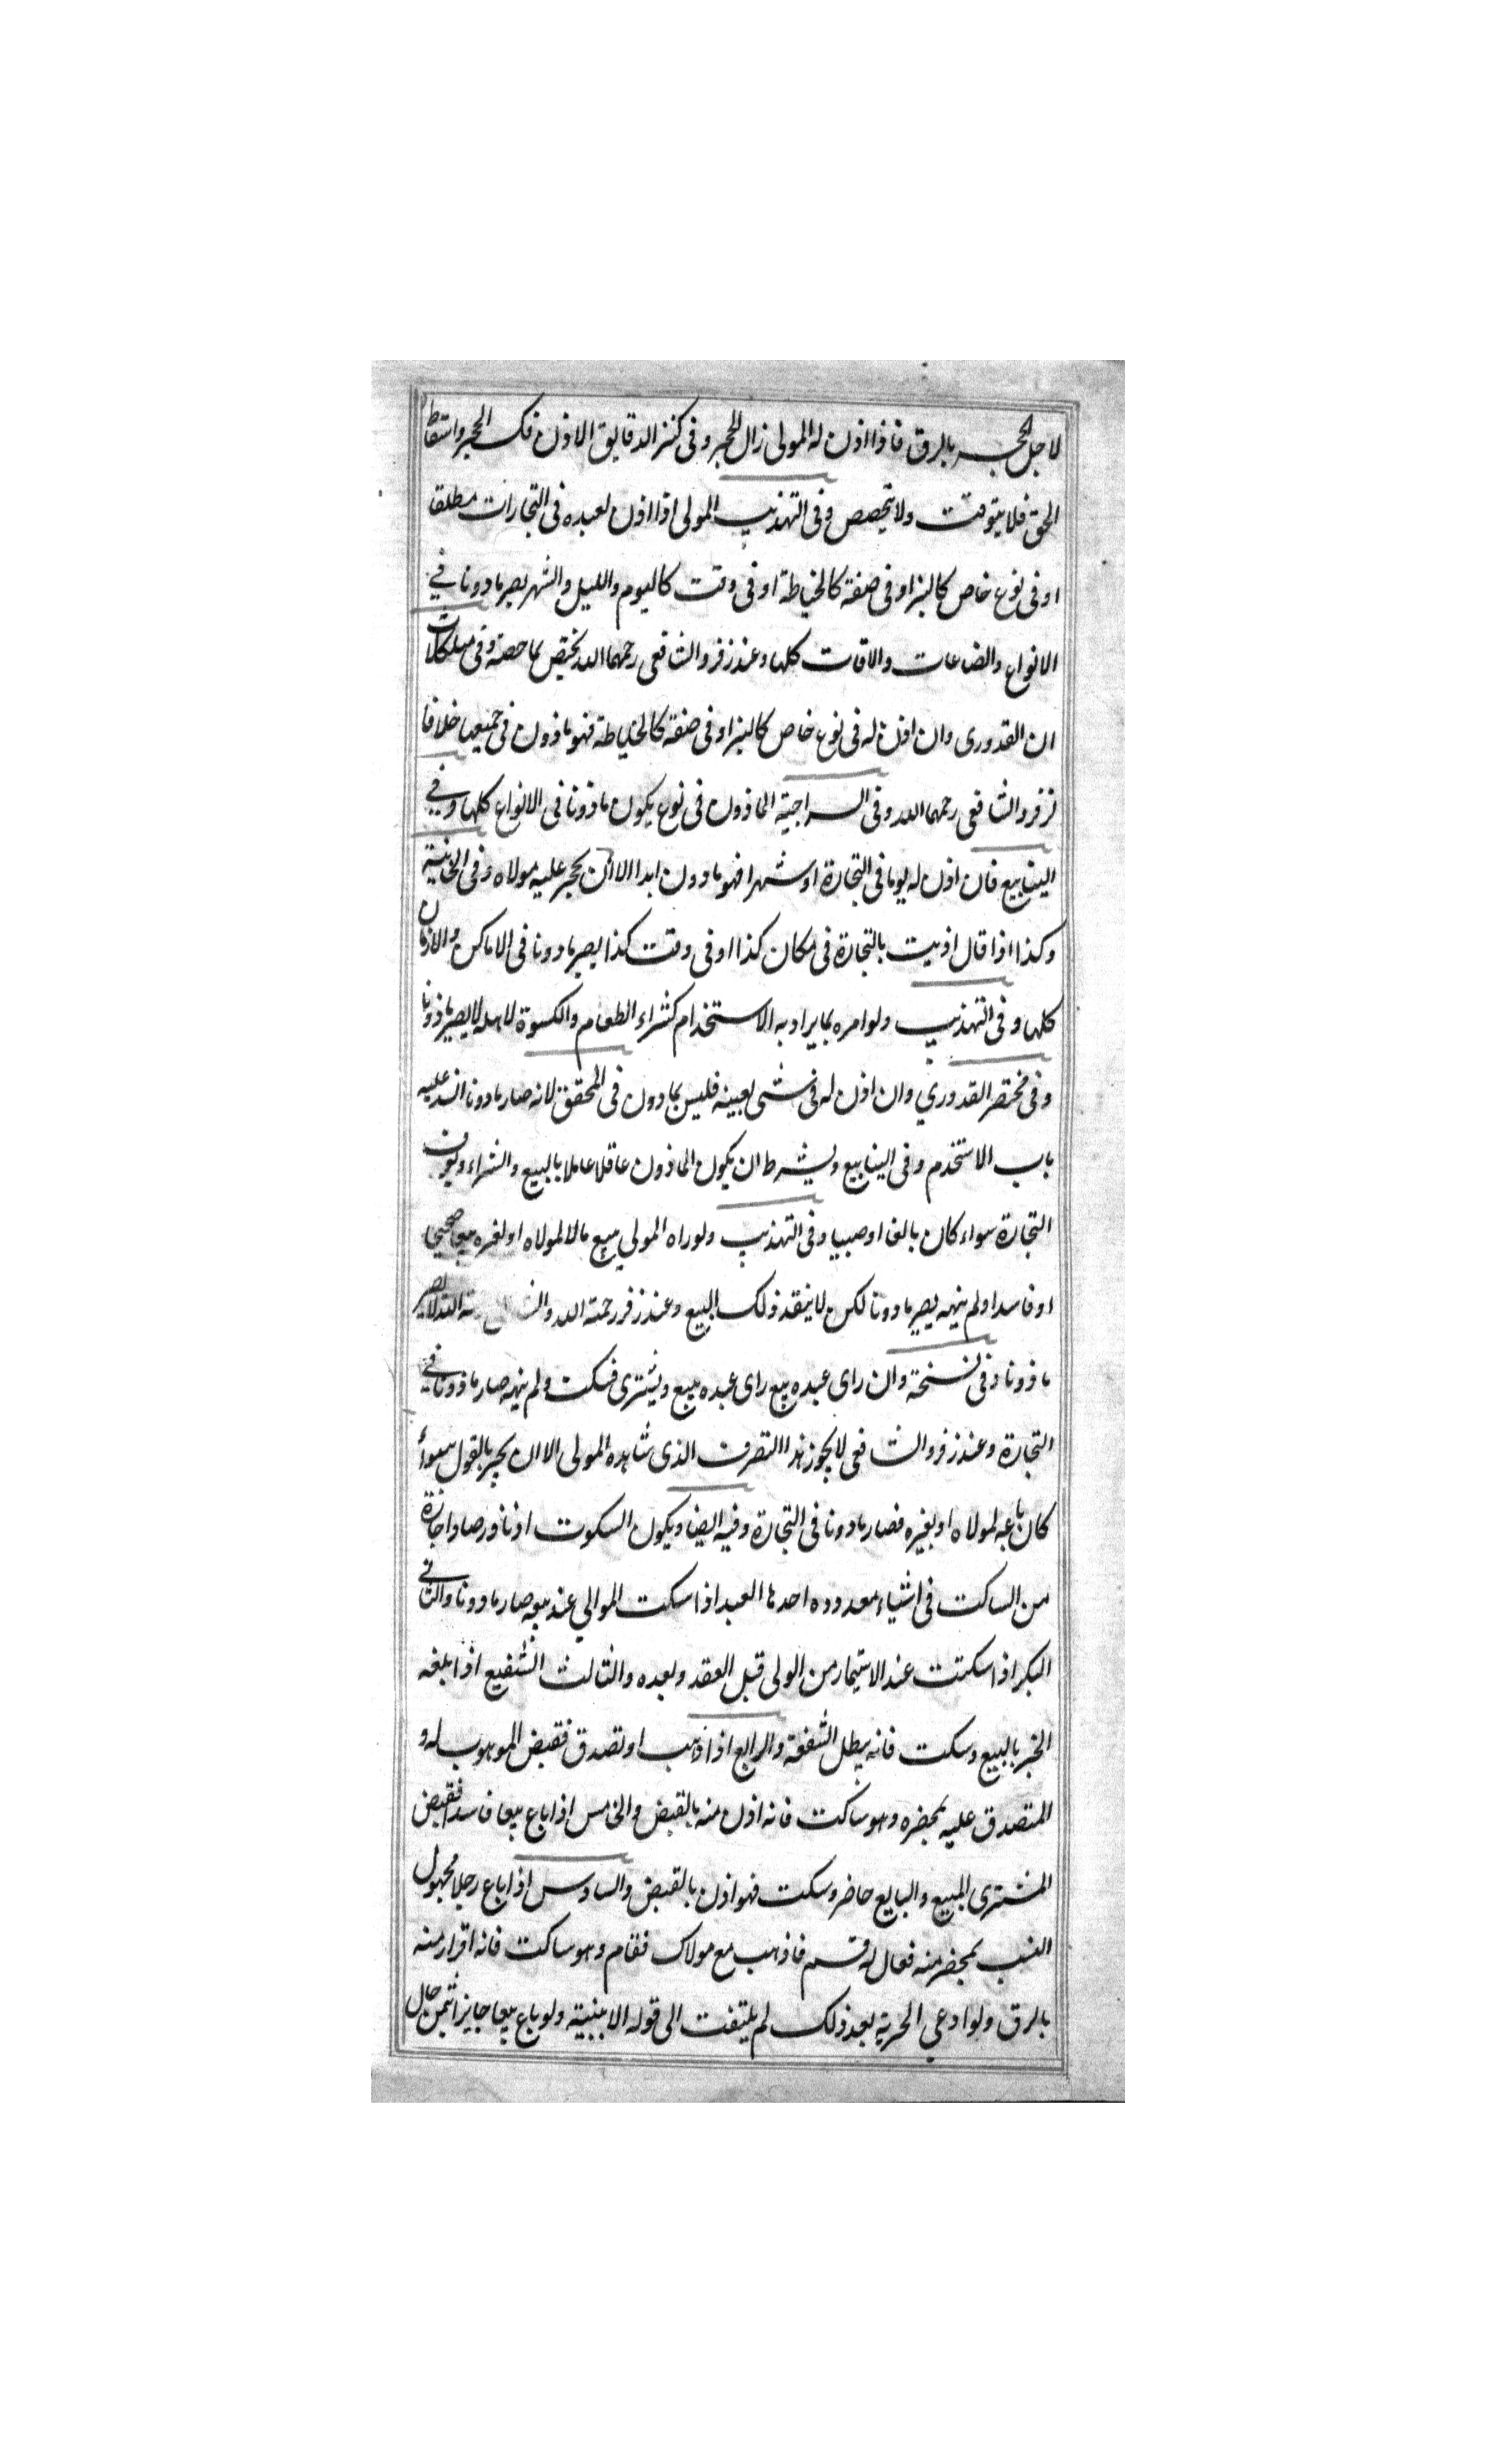 لاجل الحجر بالرق فاذا اذن له المولى زال الحجر وفى كنز الدقايق الاذن فك الحجر واسقاط
الحق فلا يتوقت ولا يتخصص وفى التهذيب المولى اذا اذن لعبده فى التجارات مطلقا
او فى نوع خاص كالبز او فى صنعة كالخياطة او فى وقت كاليوم والليل والشهر يصير مادونا في
الانواع والصناعات والاقات كلها وعند زفر والشافعى رحمهما الله يختص بما خصه وفى مشكلات
ان القدورى وان اذن له فى نوع خاص كالبز او فى صنفة كالخياطة فهو ماذون فى جميعها خلافا
لزفر والشافعى رحمهما الله وفى السراجية الماذون فى نوع يكون ماذونا فى الانواع كلها وفي
الينابيع فان اذن له يوما فى التجارة او شهرا فهو مادون ابدا الا ان يحجر عليه مولاه وفى الخانية
وكذا اذا قال اذنيت بالتجارة فى مكان كذا او فى وقت كذا يصير مادونا فى الاماكن والازمان
كلها وفى التهذيب ولو امره بما يراد به الاستخدام كشراء الطعام والكسوة لاهله لا يصير ماذونا
وفى مختصر القدوري وان اذن له فى شى بعينه فليس بمادون فى المحقق لانه صار مادونا انسد عليه
باب الاستخدم وفى الينابيع ويشرط ان يكون الماذون عاقلا عاملا بالبيع والشراء ويعرف
التجارة سواء كان بالغا او صبيا وفى التهذيب ولو راه المولي يبيع مالا لمولاه او لغيره بيعا صحيحا
او فاسدا ولم ينهه يصير مادونا لكن لا ينفذ ذلك البيع وعند زفر رحمة الله لا يصير
ماذونا وفى نسخة وان راى عبده يبيع راى عبده يبيع ويشترى فسكت ولم ينهه صار ماذونا في
التجارة وعند زفر والشافعى لا يجوز هذا التصرف الذى شاهده المولى الا ان يجيز بالقول سواء
كان باعه لمولاه او لغيره فصار مادونا فى التجارة وفيه ايضا ويكون السكوت اذنا ورضا واجازة
من الساكت فى اشياء معدوده احدها العبد اذا سكت الموالي عند بيعه صار مادونا والثاني
البكر اذا سكتت عند الاستيمار من الولى قبل العقد وبعده والثالث الشفيع اذا بلغه
الخبر بالبيع وسكت فانه يبطل الشفعة والرابع اذا وهب او تصدق فقبض الموهوب له و
المتصدق عليه بحضره وهو ساكت فانه اذن منه بالقبض والخامس اذا باع بيعا فاسدا فقبض
المشترى المبيع والبايع حاضر وسكت فهو اذن بالقبض والسادس اذا باع رجلا مجهول
النسب بمحضر منه فعال له قم فاذهب مع مولاك فقام وهو ساكت فانه اقرار منه
بالرق ولو ادعي الحرية بعد ذلك لم يلتفت الى قوله الا ببينة ولو باع بيعا جايزا بثمن حال